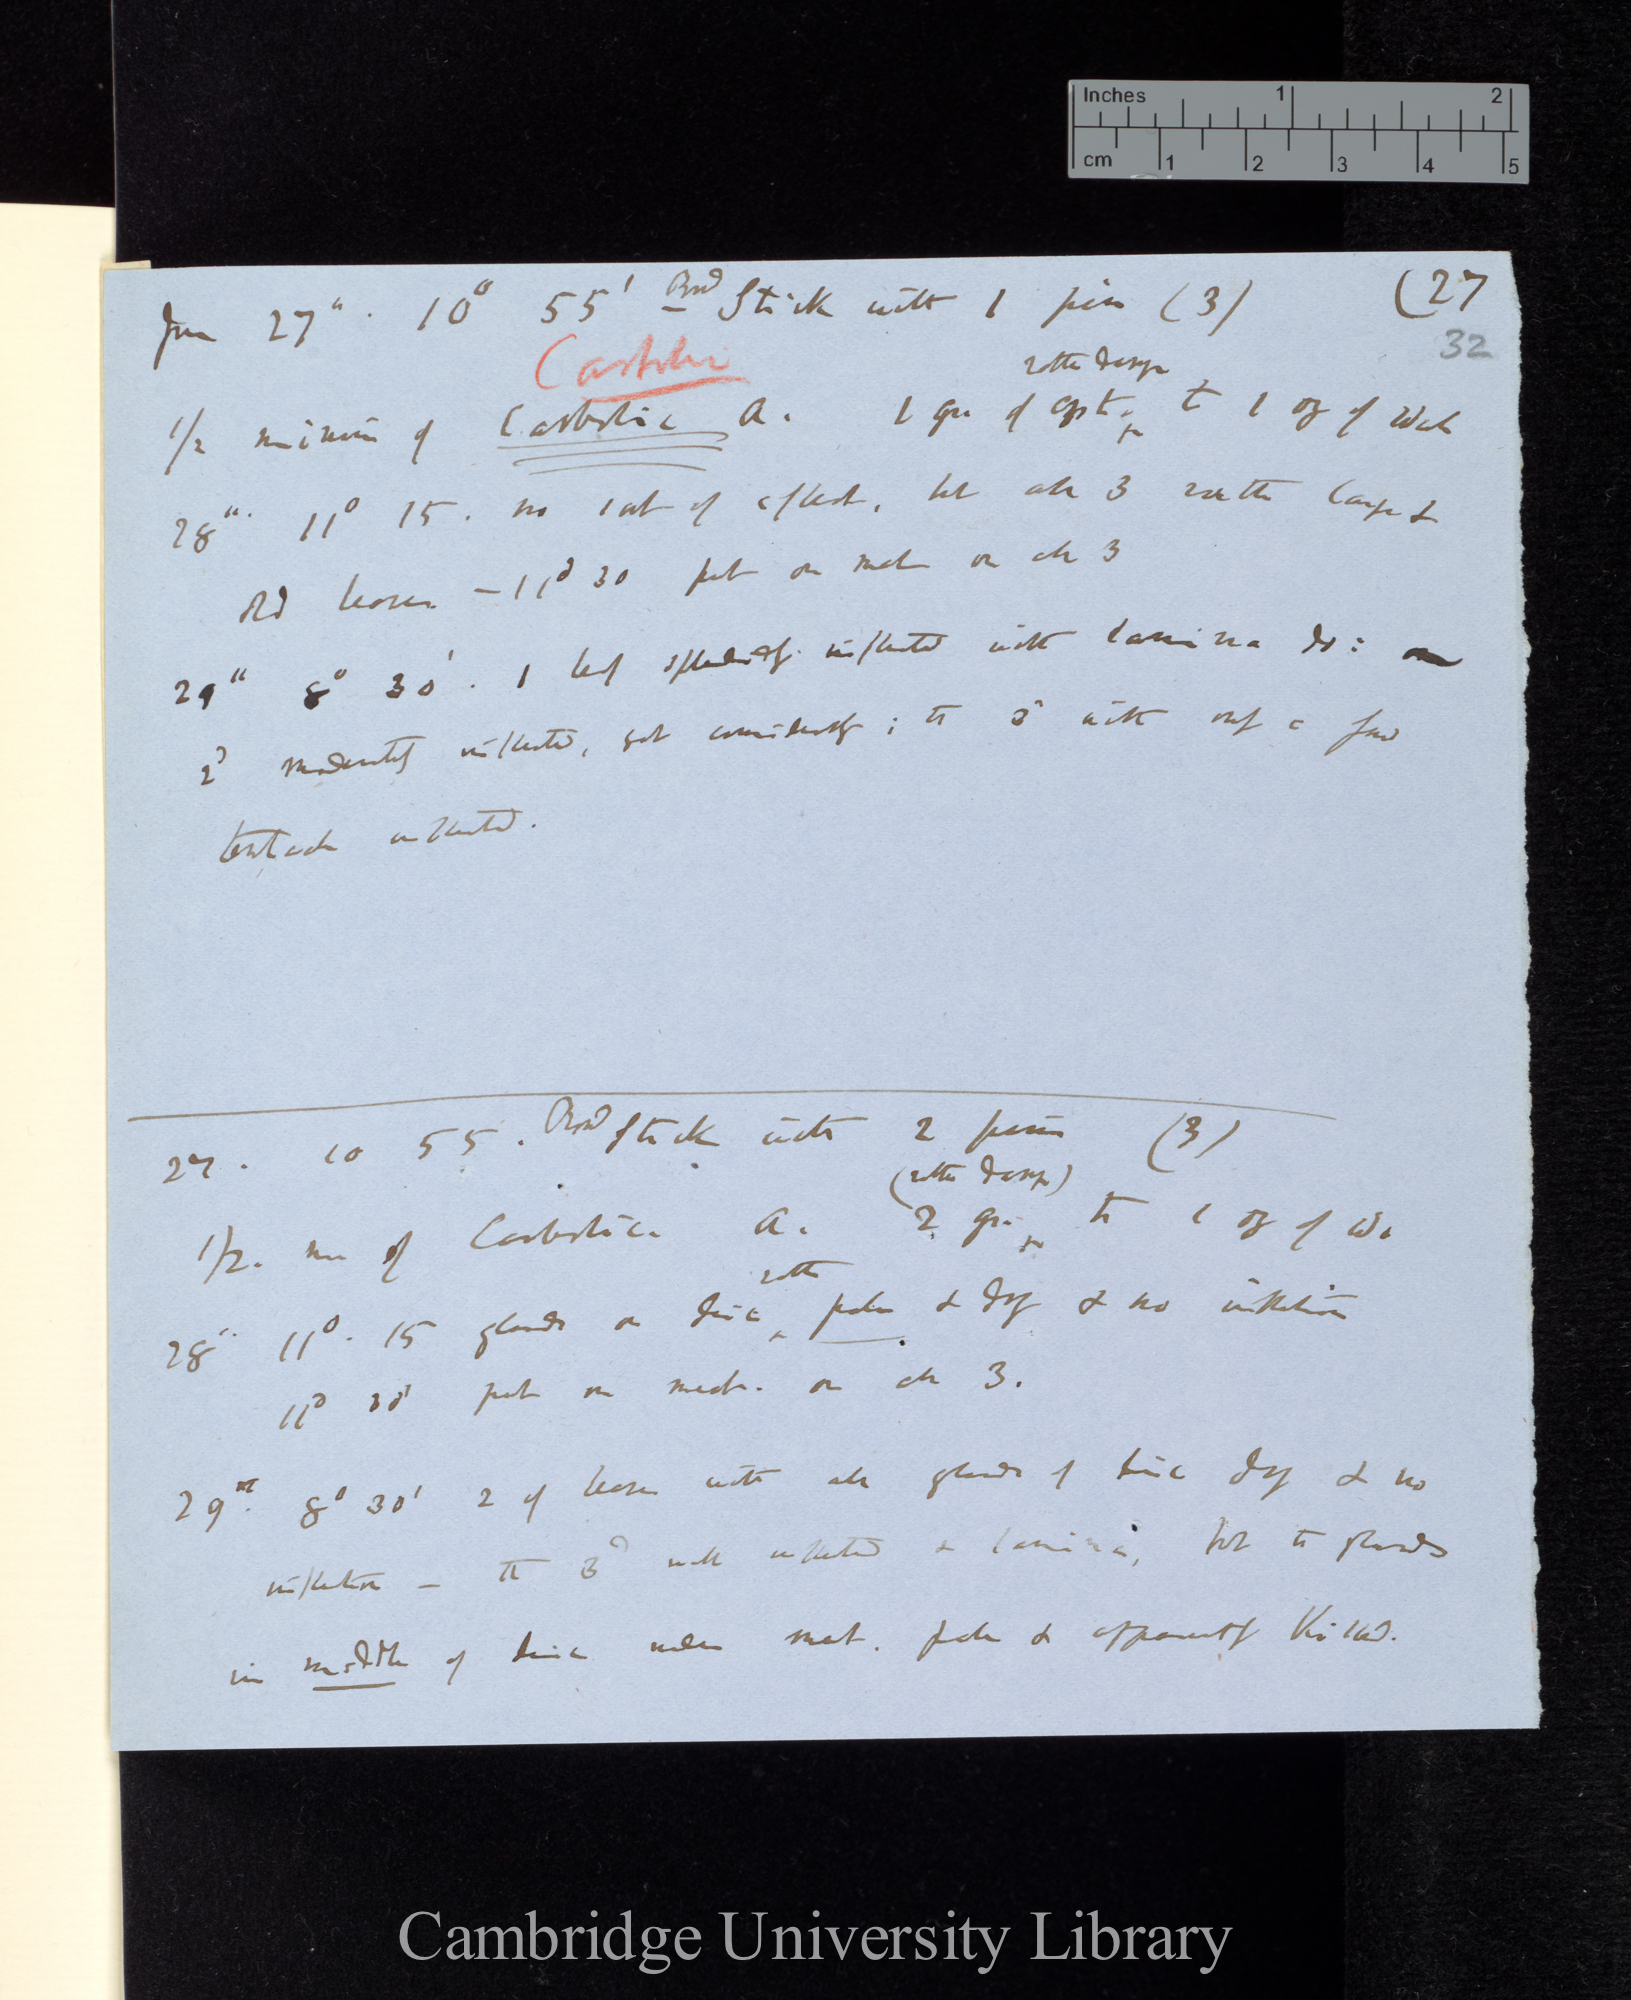 Inches 1 2
cm 1 2 3 4 5
June 27th. 10° 55' Br Stick with 1 pin (3) (27
32
Carbolic
rather damp
1/2 minim of Carbolic A. 1 gr of cryst. to 1 oz of Water
28th. 11° 15. no sort of effect, but all 3 rather large &
old leaves — 11° 30 put on meat on all 3
29th 8° 30'. 1 leaf splendidly inflected with lamina do:
2d moderately inflected, yet considerably; the 3d with only a few
tentacles inflected.
27. 10 55. Stick with 2 pins (3)
(rather damp)
1/2. min of Carbolic. A. 2 gr. to 1 oz of Wa
rather
28th 11°. 15 glands on disc pale & dry & no inflection
11° 30' put on meat. on all 3.
29th. 8° 30' 2 of leaves with all glands of disc dry & no
inflection — the 3d well inflected & lamina, but the glands
in middle of disc under meat. pale & apparently killed.
Cambridge University Library